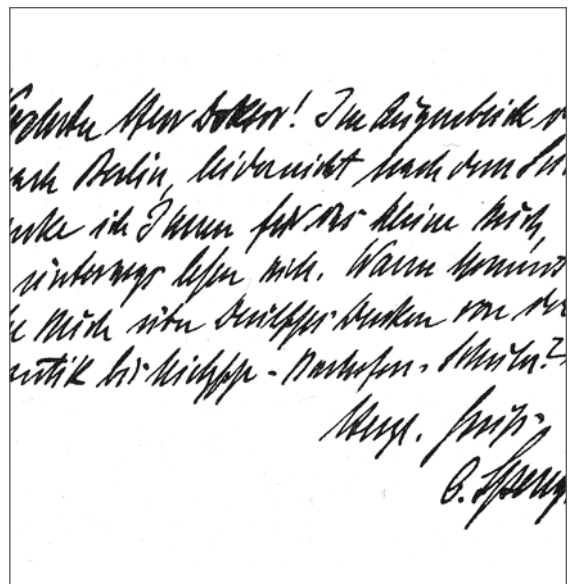 Herr Doktor! Im Augenblick
nach Berlin, leider nicht nach dem
anke ich Ihnen für das kleine Buch,
unterwegs lesen will. Wann kommt
Buch über deutsches Denken von der
antik bis Nietzsche - Bachofen - Schuler?
Herzl. Gruß
O. Speng